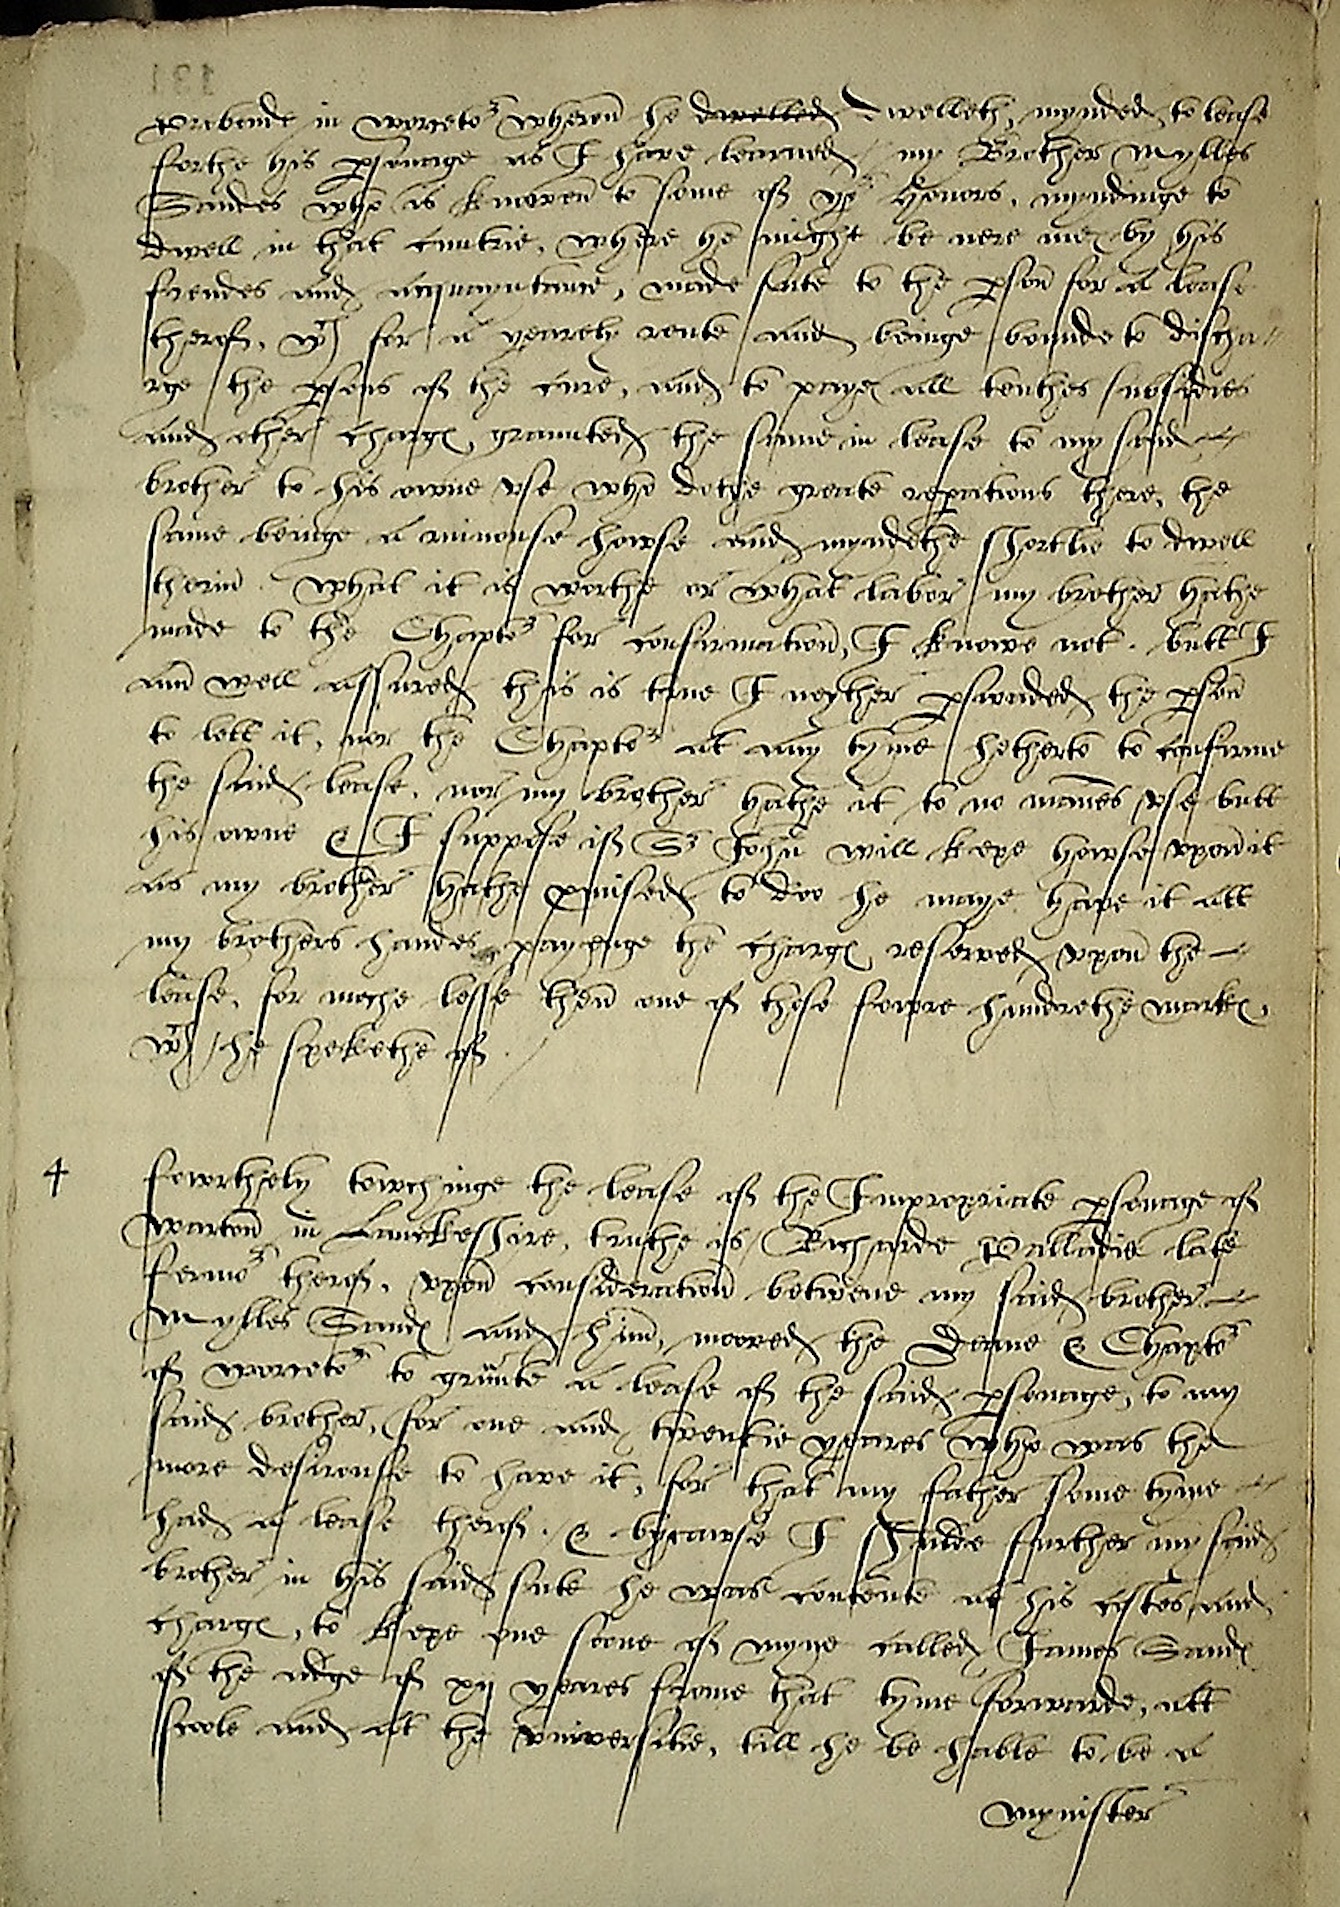 prebende in worceto^r wherin he dwelled dwelleth, mynded to lease
forthe his psonage as I have learned, my Brother Mylles
Sandes who is knowen to some of yo^r Honors, myndinge to
dwell in that cuntrie, where he might be nere me by his
frendes and acquayntance, made sute to the pson for a lease
therof, w^ch for a yearely rente and beinge bounde to discha-
rge the psons of the cure, and to paye all tenthes subsidies
and other charges, graunted the same in lease to my said
brother to his owne use who dothe greate repations there, the
same beinge a ruinouse howse and myndethe shortlie to dwell
therin. What it is worthe or what labor my brother hathe
made to the Chapto^r for confirmation, I knowe not. butt I
am well assured this is true I neyther pswaded the pson
to lett it, nor the Chapto^r at any tyme hetherto to confirme
the said lease, nor my brother hathe it to no mannes use butt
his owne & I suppose if S^r John will kepe howse upon it
as my brother hathe pmised to doo he maye have it att
my brothers handes payenge the charges reserved upon the
lease, for moche lesse then one of these fowre hundrethe markes,
w^ch he spekethe of.
4 fowrthely towchinge the lease of the Impropriate psonage of
Warton in Lanckeshire, truthe is Richarde Palladie late
fermo^r therof, upon consideration betwene my said brother
Mylles Sandes and him, moved the Deane & Chapto^r
of worceto^r to graunte a lease of the said psonage, to my
said brother, for one and twentie yeares who was the
more desirouse to have it, for that my father some tyme
had a lease therof. & bycawse I shulde further my said
brother in his said sute he was contente at his costes and
charges, to kepe one sonne of myne called James Sandes
of the adge of xij yeares frome that tyme forwarde, att
scole and at the universitie, till he be hable to be a
mynister